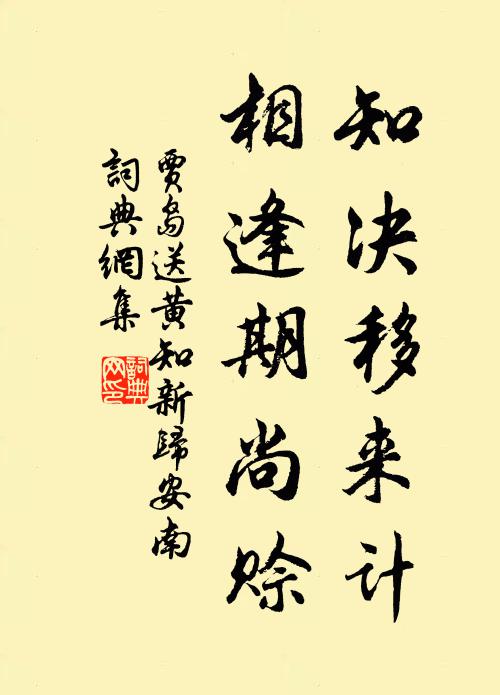 知决移来计
相逢期尚赊
贾岛送黄知新歸安南
詞典網集
詞典
网印